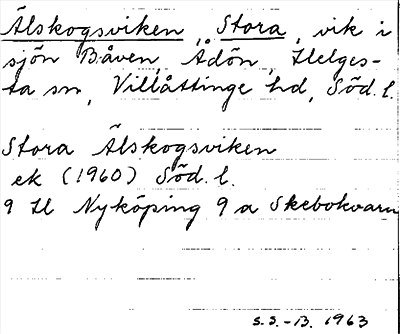 Älskogsviken, Stora, vik i
sjön Båven, Ådön, Helges-
ta sn, Villåttinge hd, Söd. l.
Stora Älskogsviken
ek (1960) Söd. l.
9 H Nyköping 9 a Skebokvarn
S.S.-B. 1963